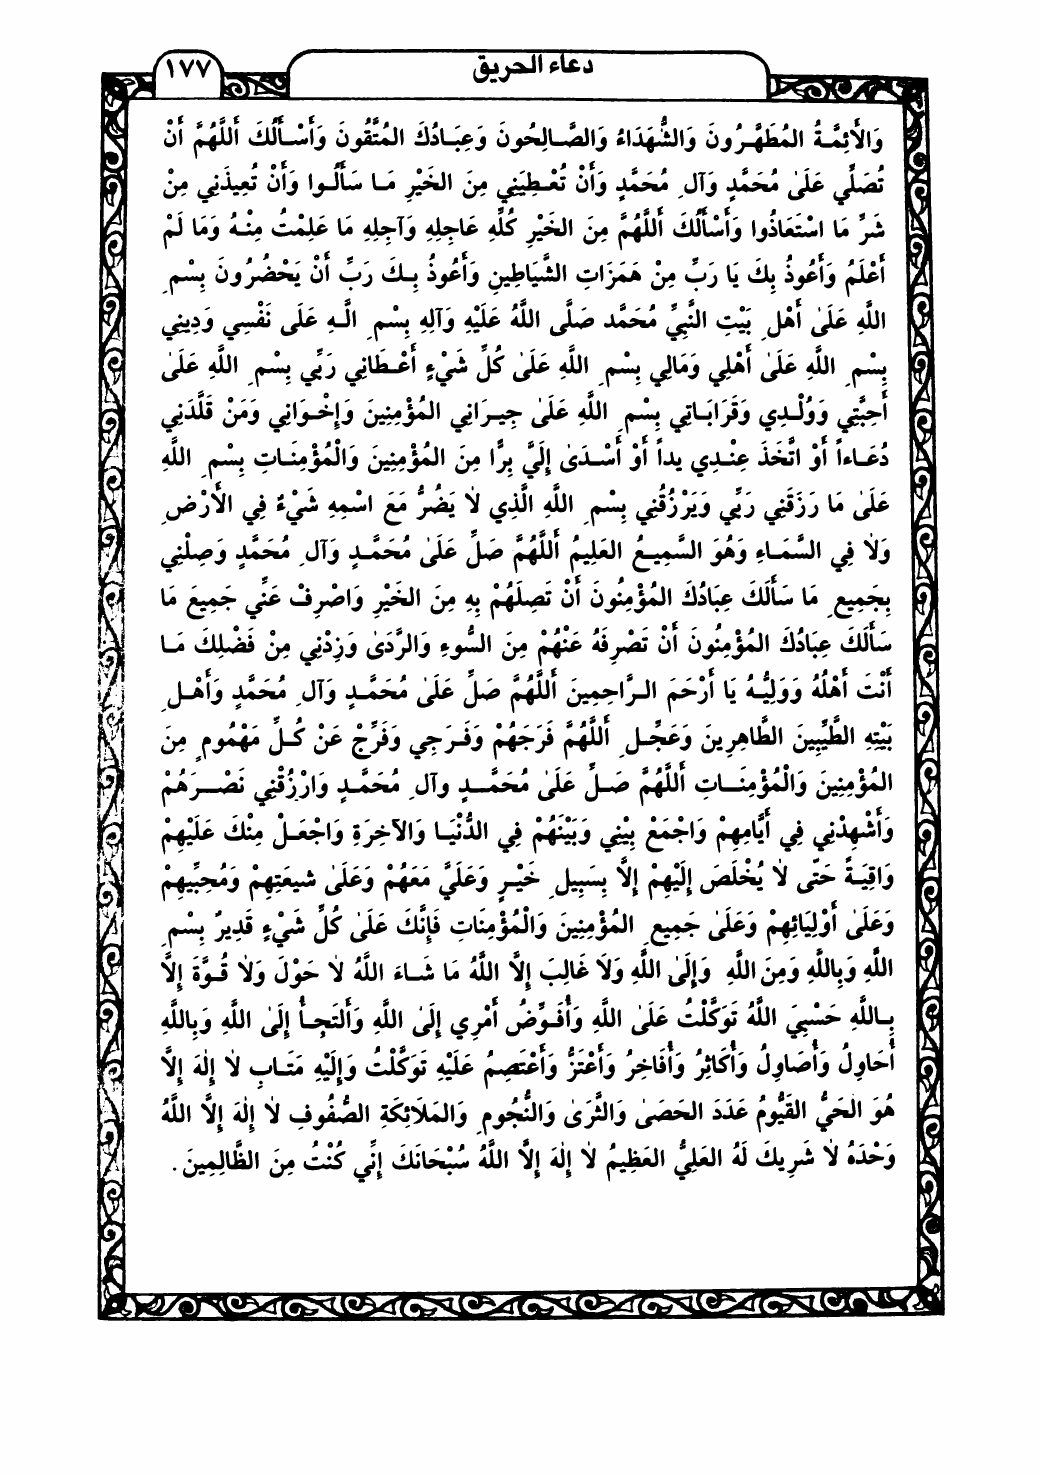 دعاء الحريق
١٧٧
وَالأَئِمَّةُ المُطَهَّرُونَ وَالشُّهَدَاءُ وَالصَّالِحُونَ وَعِبَادُكَ المُتَّقُونَ وَأَسْأَلُكَ أَللَّهُمَّ أَنْ
تُصَلِّي عَلَىٰ مُحَمَّدٍ وَآلِ مُحَمَّدٍ وَأَنْ تُعْطِيَنِي مِنَ الخَيْرِ مَا سَأَلُوا وَأَنْ تُعِيذَنِي مِنْ
شَرِّ مَا اسْتَعَاذُوا وَأَسْأَلُكَ أَللَّهُمَّ مِنَ الخَيْرِ كُلِّهِ عَاجِلِهِ وَآجِلِهِ مَا عَلِمْتُ مِنْهُ وَمَا لَمْ
أَعْلَمُ وَأَعُوذُ بِكَ يَا رَبِّ مِنْ هَمَزَاتِ الشَّيَاطِينِ وَأَعُوذُ بِكَ رَبِّ أَنْ يَحْضُرُونَ بِسْمِ
اللَّهِ عَلَىٰ أَهْلِ بَيْتِ النَّبِيِّ مُحَمَّد صَلَّى اللَّهُ عَلَيْهِ وَآلِهِ بِسْمِ الَّهِ عَلَى نَفْسِي وَدِينِي
بِسْمِ اللَّهِ عَلَىٰ أَهْلِي وَمَالِي بِسْمِ اللَّهِ عَلَىٰ كُلِّ شَيْءٍ أَعْطَانِي رَبِّي بِسْمِ اللَّهِ عَلَىٰ
أَحِبَّتِي وَوُلْدِي وَقَرَابَاتِي بِسْمِ اللَّهِ عَلَىٰ جِيرَانِي المُؤْمِنِينَ وَإِخْوَانِي وَمَنْ قَلَّدَنِي
دُعَاءاً أَوْ اتَّخَذَ عِنْدِي يداً أَوْ أَسْدَىٰ إِلَيَّ بِرًّا مِنَ المُؤْمِنِينَ وَالْمُؤْمِنَاتِ بِسْمِ اللَّهِ
عَلَىٰ مَا رَزَقَنِي رَبِّي وَيَرْزُقُنِي بِسْمِ اللَّهِ الَّذِي لاَ يَضُرُّ مَعَ اسْمِهِ شَيْءٌ فِي الأَرْضِ
وَلاَ فِي السَّمَاءِ وَهُوَ السَّمِيعُ العَلِيمُ أَللَّهُمَّ صَلِّ عَلَىٰ مُحَمَّدٍ وَآلِ مُحَمَّدٍ وَصِلْنِي
بِجَمِيعِ مَا سَأَلَكَ عِبَادُكَ المُؤْمِنُونَ أَنْ تَصِلَهُمْ بِهِ مِنَ الخَيْرِ وَاصْرِفْ عَنِّي جَمِيعَ مَا
سَأَلَكَ عِبَادُكَ المُؤْمِنُونَ أَنْ تَصْرِفَهُ عَنْهُمْ مِنَ السُّوءِ وَالرَّدَىٰ وَزِدْنِي مِنْ فَضْلِكَ مَا
أَنْتَ أَهْلُهُ وَوَلِيُّهُ يَا أَرْحَمَ الرَّاحِمِينَ أَللَّهُمَّ صَلِّ عَلَىٰ مُحَمَّدٍ وَآلِ مُحَمَّدٍ وَأَهْلِ
بَيْتِهِ الطَّيِّبِينَ الطَّاهِرِينَ وَعَجِّلِ أَللَّهُمَّ فَرَجَهُمْ وَفَرَجِي وَفَرِّجْ عَنْ كُلِّ مَهْمُومٍ مِنَ
المُؤْمِنِينَ وَالْمُؤْمِنَاتِ أَللَّهُمَّ صَلِّ عَلَىٰ مُحَمَّدٍ وآلِ مُحَمَّدٍ وَارْزُقْنِي نَصْرَهُمْ
وَأَشْهِدْنِي فِي أَيَّامِهِمْ وَاجْمَعْ بِيْنِي وَبَيْنَهُمْ فِي الدُّنْيَا وَالآخِرَةِ وَاجْعَلْ مِنْكَ عَلَيْهِمْ
وَاقِيَةً حَتّى لاَ يُخْلَصَ إِلَيْهِمْ إِلاَّ بِسَبِيلِ خَيْرٍ وَعَلَيَّ مَعَهُمْ وَعَلَىٰ شيعَتِهِمْ وَمُحِبِّيهِمْ
وَعَلَىٰ أَوْلِيَائِهِمْ وَعَلَىٰ جَمِيعِ المُؤْمِنِينَ وَالْمُؤْمِنَاتِ فَإِنَّكَ عَلَىٰ كُلِّ شَيْءٍ قَدِيرٌ بِسْمِ
اللَّهِ وَبِاللَّهِ وَمِنَ اللَّهِ وَإِلَىٰ اللَّهِ وَلاَ غَالِبَ إِلَّا اللَّهُ مَا شَاءَ اللَّهُ لاَ حَوْلَ وَلاَ قُوَّةَ إِلَّا
بِاللَّهِ حَسْبِيَ اللَّهُ تَوَكَّلْتُ عَلَىٰ اللَّهِ وَأُفَوِّضُ أَمْرِي إِلَىٰ اللَّهِ وَأَلتَجِأُ إِلَىٰ اللَّهِ وَبِاللَّهِ
أُحَاوِلُ وَأُصَاوِلُ وَأُكَاثِرُ وَأُفَاخِرُ وَأَعْتَزُّ وَأَعْتَصِمُ عَلَيْهِ تَوَكَّلْتُ وَإِلَيْهِ مَتَابِ لاَ إِلٰهَ إِلَّا
هُوَ الْحَيُّ القَيُّومُ عَدَدَ الحَصَىٰ وَالثَّرَىٰ وَالنُّجُومِ وَالمَلاَئِكَةِ الصُّفُوفِ لاَ إِلٰهَ إِلاَّ اللَّهُ
وَحْدَهُ لاَ شَرِيكَ لَهُ العَلِيُّ العَظِيمُ لاَ إِلٰهَ إِلَّا اللَّهُ سُبْحَانَكَ إِنِّي كُنْتُ مِنَ الظَّالِمِينَ .